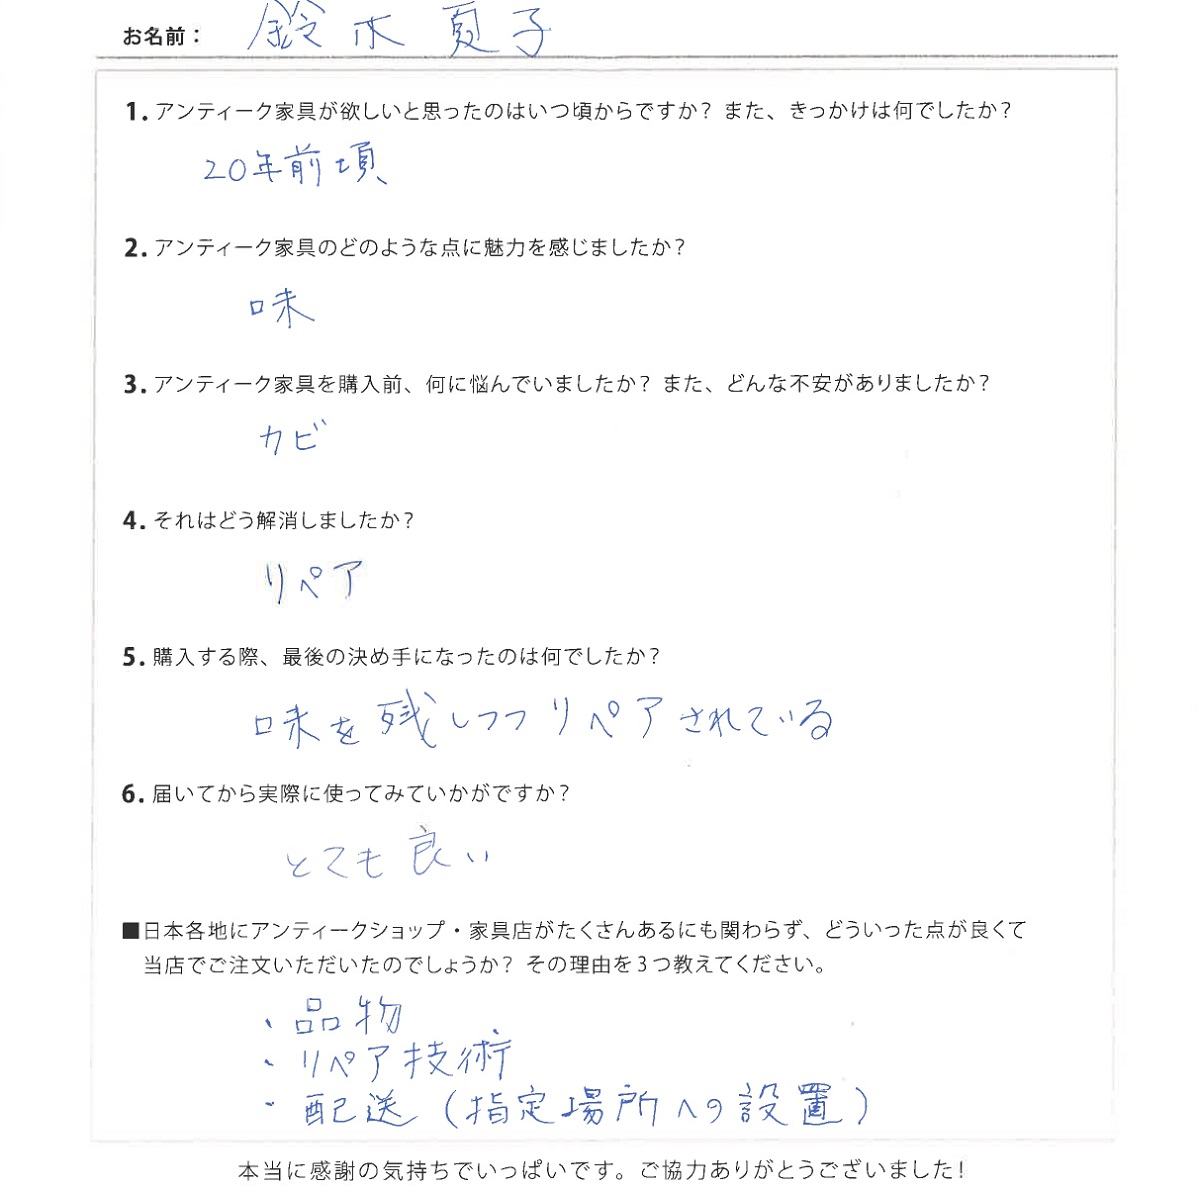 お名前： 鈴木夏子
1. アンティーク家具が欲しいと思ったのはいつ頃からですか？また、きっかけは何でしたか？
20年前頃
2. アンティーク家具のどのような点に魅力を感じましたか？
味
3. アンティーク家具を購入前、何に悩んでいましたか？また、どんな不安がありましたか？
カビ
4. それはどう解消しましたか？
リペア
5. 購入する際、最後の決め手になったのは何でしたか？
味を残しつつリペアされている
6. 届いてから実際に使ってみていかがですか？
とても良い
■日本各地にアンティークショップ・家具店がたくさんあるにも関わらず、どういった点が良くて
当店でご注文いただいたのでしょうか？その理由を3つ教えてください。
・品物
・リペア技術
・配送（指定場所への設置）
本当に感謝の気持ちでいっぱいです。ご協力ありがとうございました！